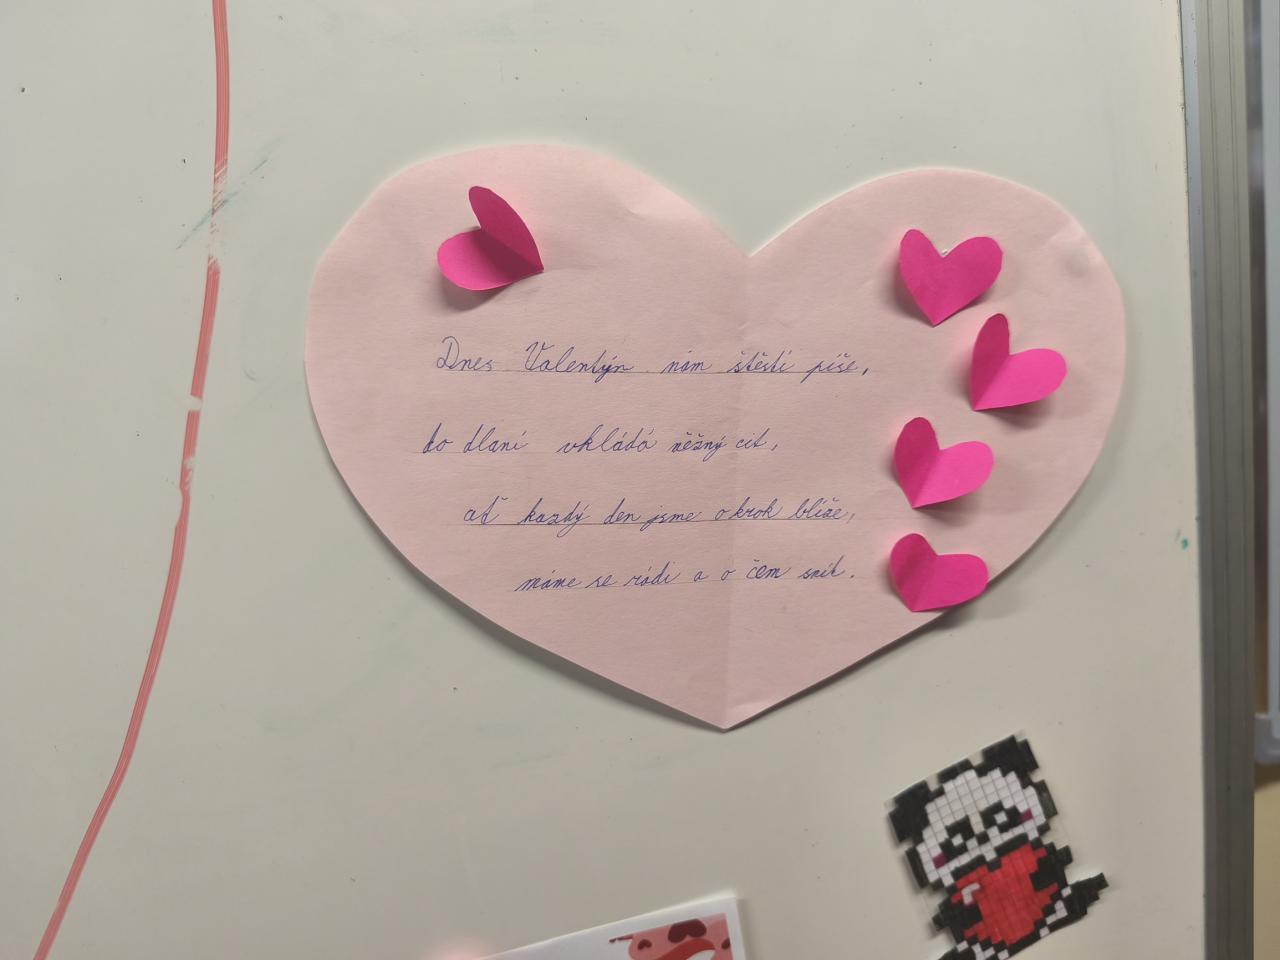 Dnes Valentýn nám štěstí píše,
do dlaní vkládá něžný cit,
ať každý den jsme o krok blíže,
máme se rádi a o čem snít.